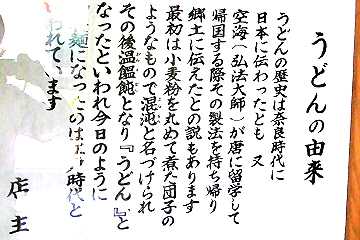 うどんの由来
うどんの歴史は奈良時代に
日本に伝わったとも 又
空海(弘法大師)が唐に留学して
帰国する際その製法を持ち帰り
郷土に伝えたとの説もあります
最初は小麦粉を丸めて煮た団子の
ようなもので混沌と名づけられ
その後温飩となり『うどん』と
なったといわれ今日のように
麺になったのは 時代と
われています
店主